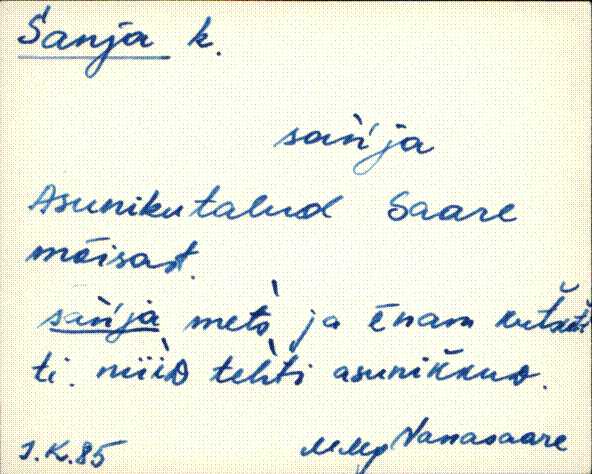 Sanja k.
sań'ja
Asunikutalud Saare
mõisast.
sań'ja metś ja ēnam
ti. tehti asunikkuo.
J.K.85 MMg Vanasaare